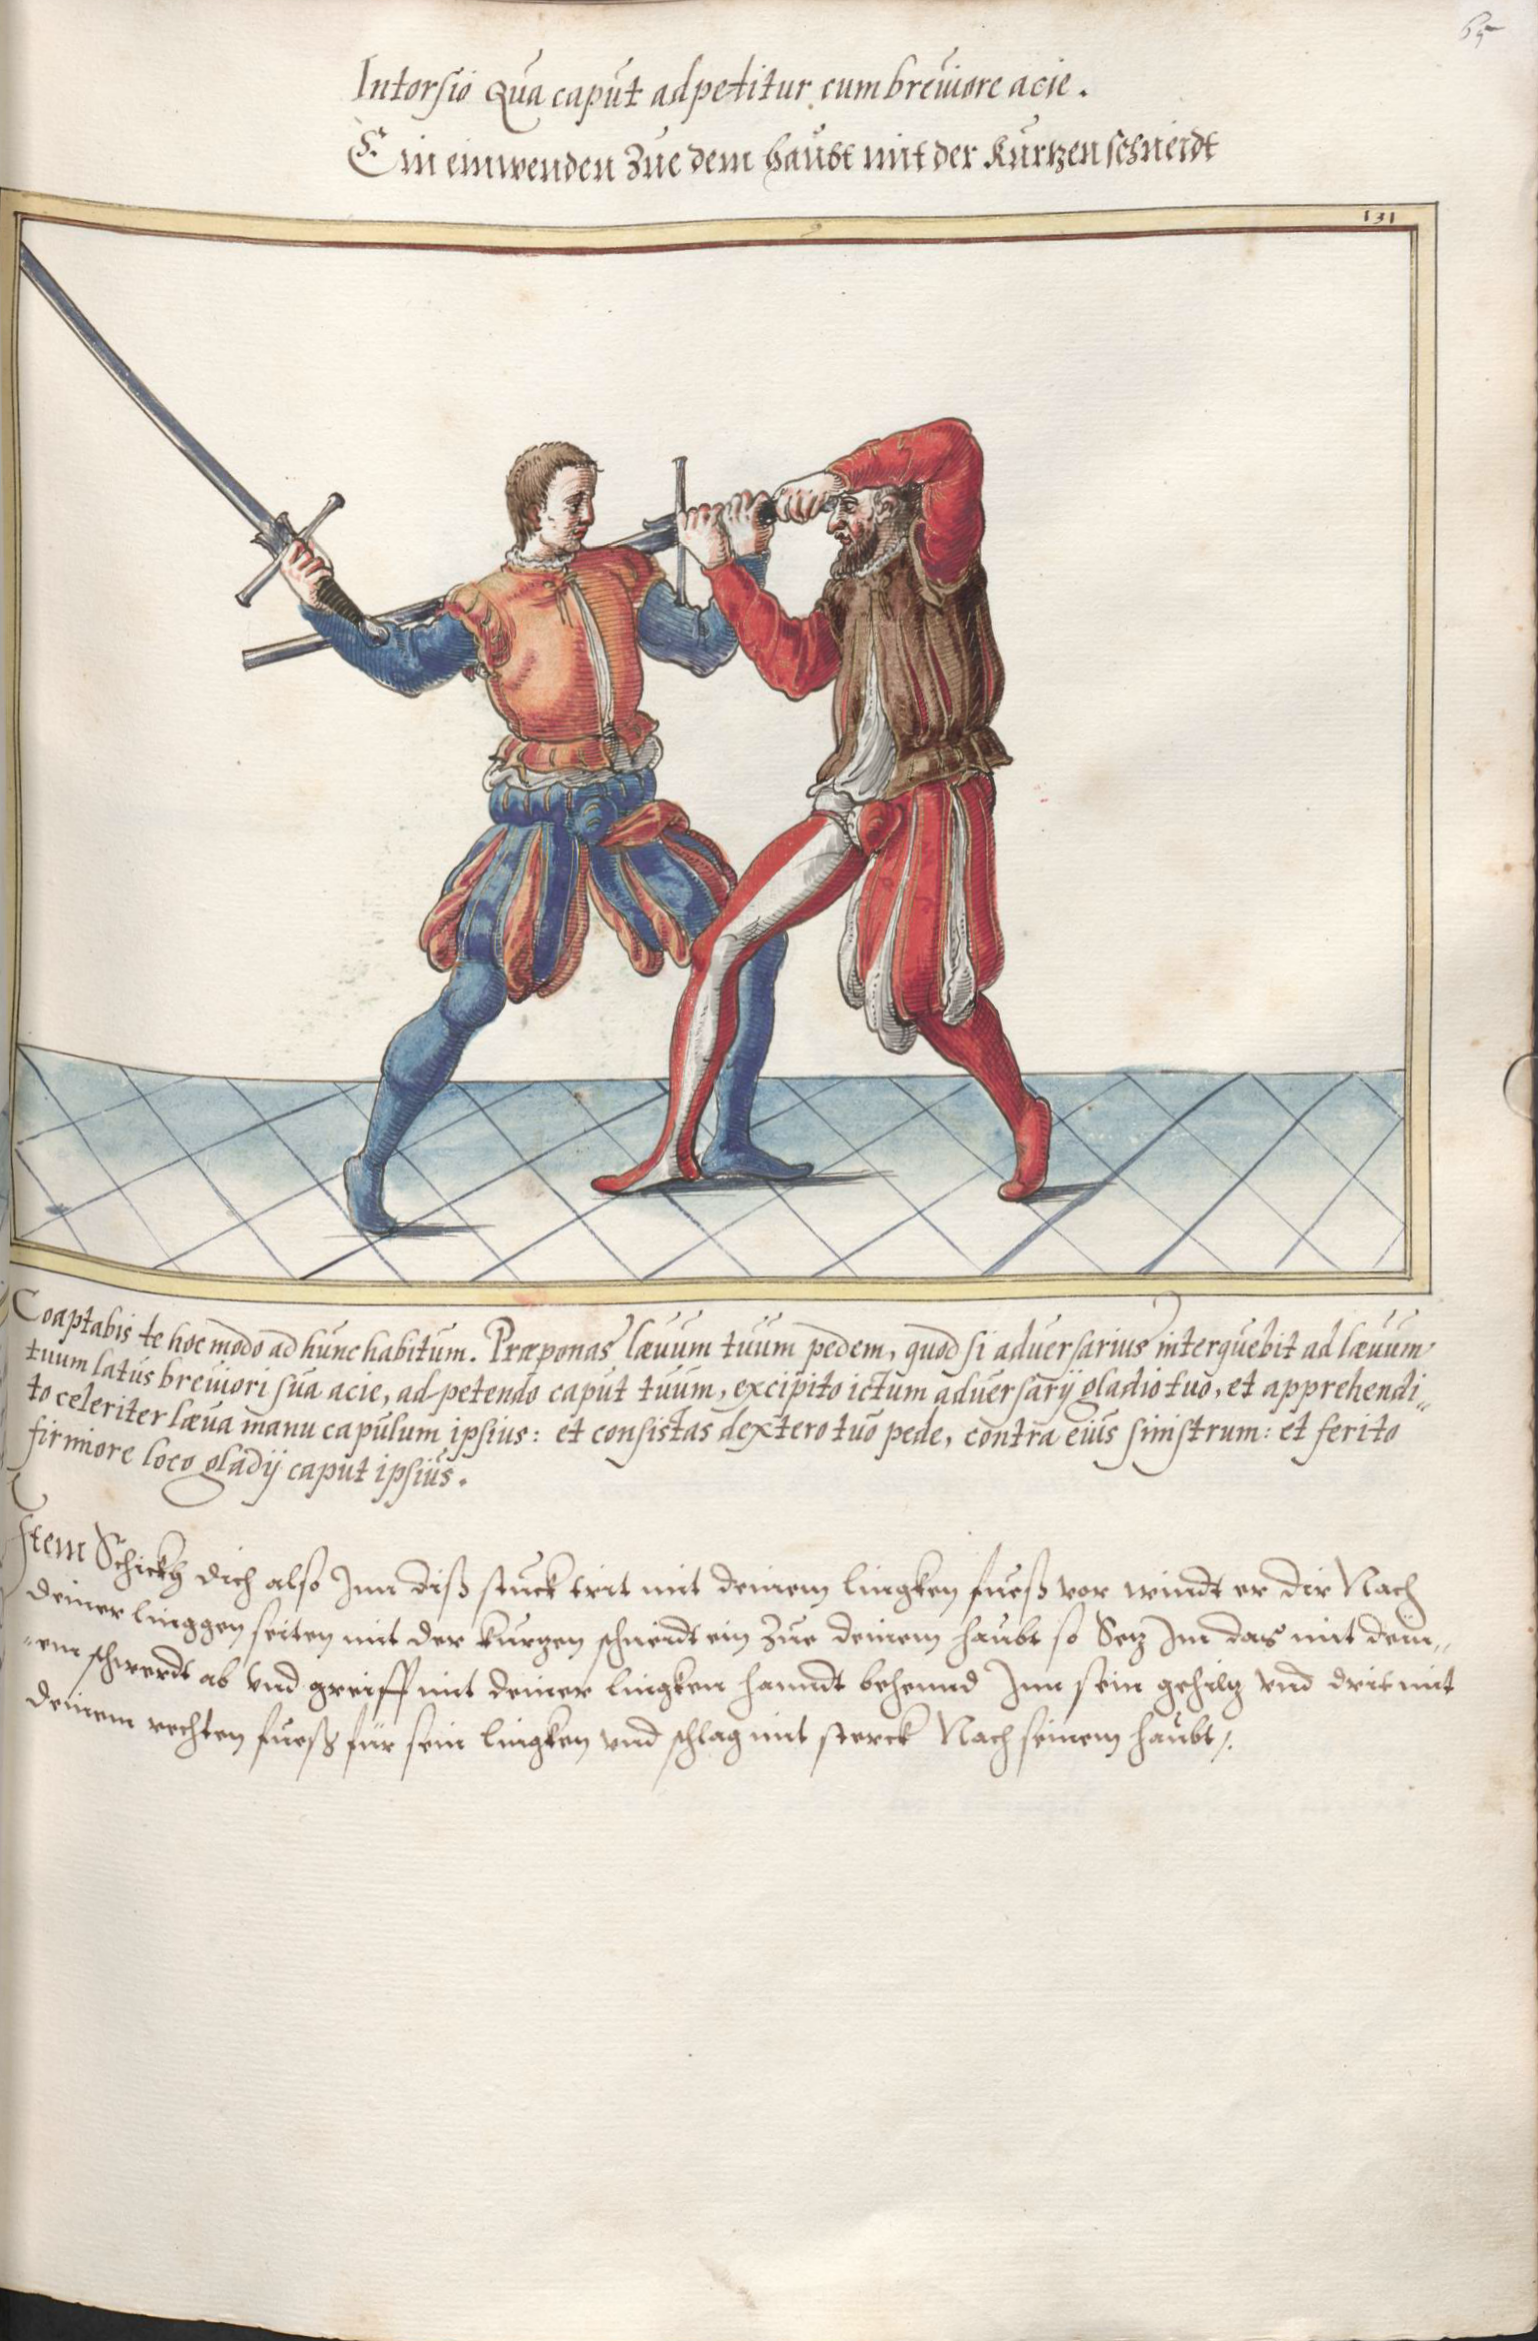 65
Intorsio Qua caput adpetitur cum breuiore acie.
Ein einwenden Zue dem haubt mit der Kurtzen schneidt
131
Coaptabis te hoc modo ad hunc habitum. Præponas lævum tuum pedem, quod si aduersarius interquebit ad lævum
tuum latus breuiori sua acie, ad petendo caput tuum, excipito ictum aduersarij gladio tuo, et apprehendi„
to celeriter læva manu capulum ipsius: et consistas dextero tuo pede, contra euis sinistrum: et ferito
firmiore loco gladij caput ipsius.
Item Schickh dich also Inn diß stuck trit mit deinem lingken fueß vor windt er dir Nach
deiner linggen seiten mit der kurtzen schneidt ein Zue deinem haubt so Setz Im das mit dein„
„em schwerdt ab vnd greiff mit deiner lingken hanndt behennd Inn sein gehiltz vnd drit mit
deinem rechten fueß für sein lingken vnd schlag mit sterck Nach seinem haubt /.